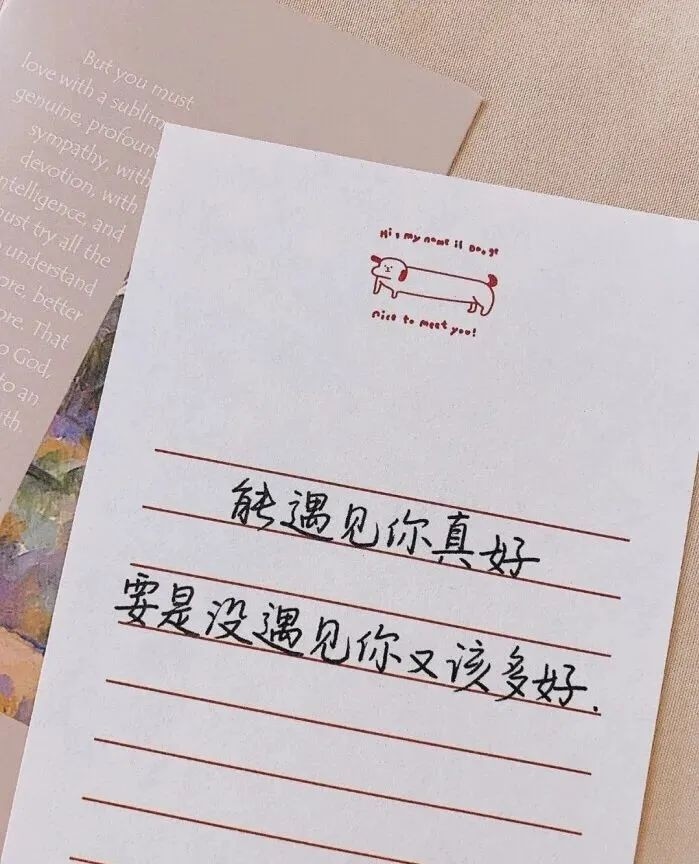 But you must
love with a sublim
genuine, profoun
sympathy, with
devotion, with
ntelligence, and
must try all the
understand
ore, better
ore. That
God,
to an
Hi, my name is
nice to meet you!
能遇见你真好
要是没遇见你又该多好.